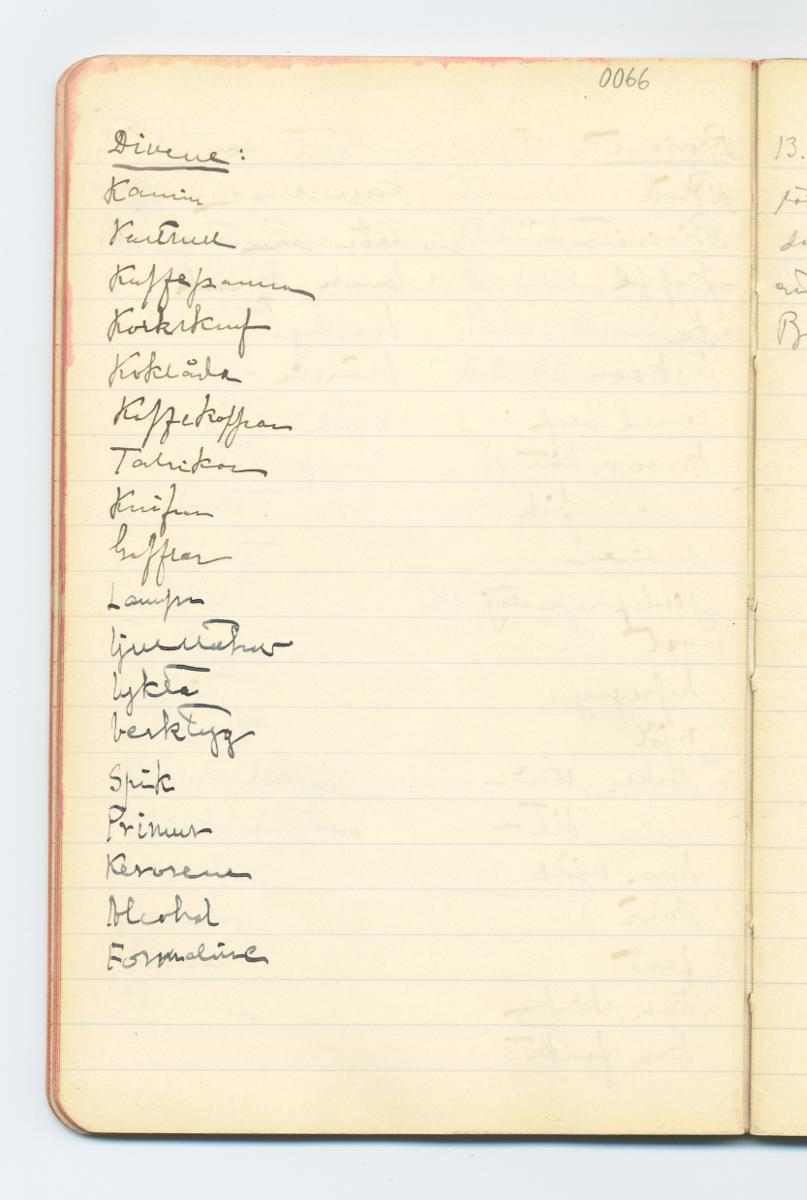 0066
Diverse:
Kamin
Kaffepanna
Korkskruf
Koklåda
Kaffekoppar
Talrikar
Knifvar
Gafflar
Lampa
Ljusstakar
Lykta
Verktyg
Spik
Primus
Kerosene
Alcohol
Formaline
13.